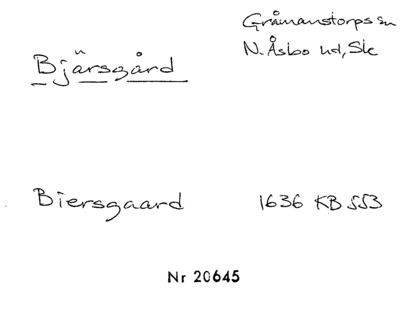 Gråmanstorps sn
Bjärsgård
N. Åsbo hd, Sk
Biersgaard 1636 KB 553
Nr 20645